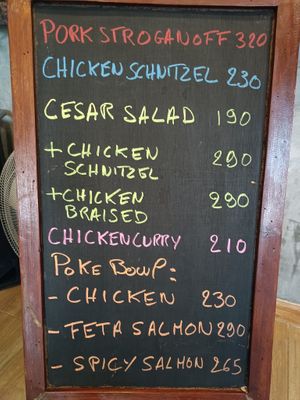 PORK STROGANOFF 320
CHICKEN SCHNITZEL 230
CESAR SALAD 190
+ CHICKEN 290
SCHNITZEL
+ CHICKEN 290
BRAISED
CHICKEN CURRY 210
POKE BOWP:
- CHICKEN 230
- FETA SALMON 290
- SPICY SALMON 265